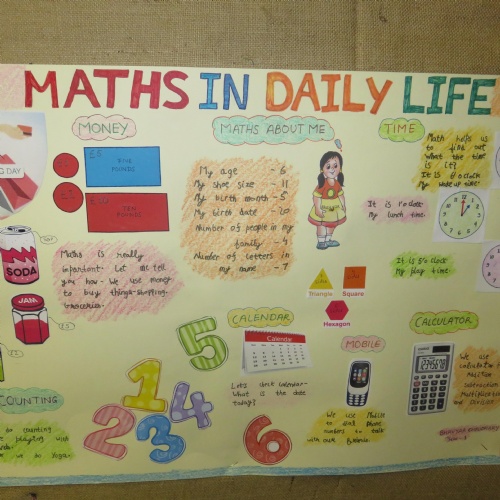 MATHS IN DAILY LIFE
G DAY
MONEY
FIVE
POUNDS
TEN
POUNDS
SODA
JAM
Maths is really
important. Let me tell
you how - We use money
to buy things-shopping-
groceries.
COUNTING
MATHS ABOUT ME
My age - 6
My shoe size - 11
My birth month - 5
My birth date - 20
Number of people in my
family - 4
Number of letters in
my name - 7
Triangle
Square
Hexagon
TIME
Math helps us
to find out
what the time
is it?
It is 6 o'clock
My wake up time.
It is 1 o'clock
My lunch time.
It is 5 o'clock
My play time.
5
1
4
2
3
6
CALENDAR
Calendar
Lets check calendar-
What is the date
today?
MOBILE
We use Mobile
to dial phone
numbers to talk
with our
CALCULATOR
We use
Addition
Subtraction